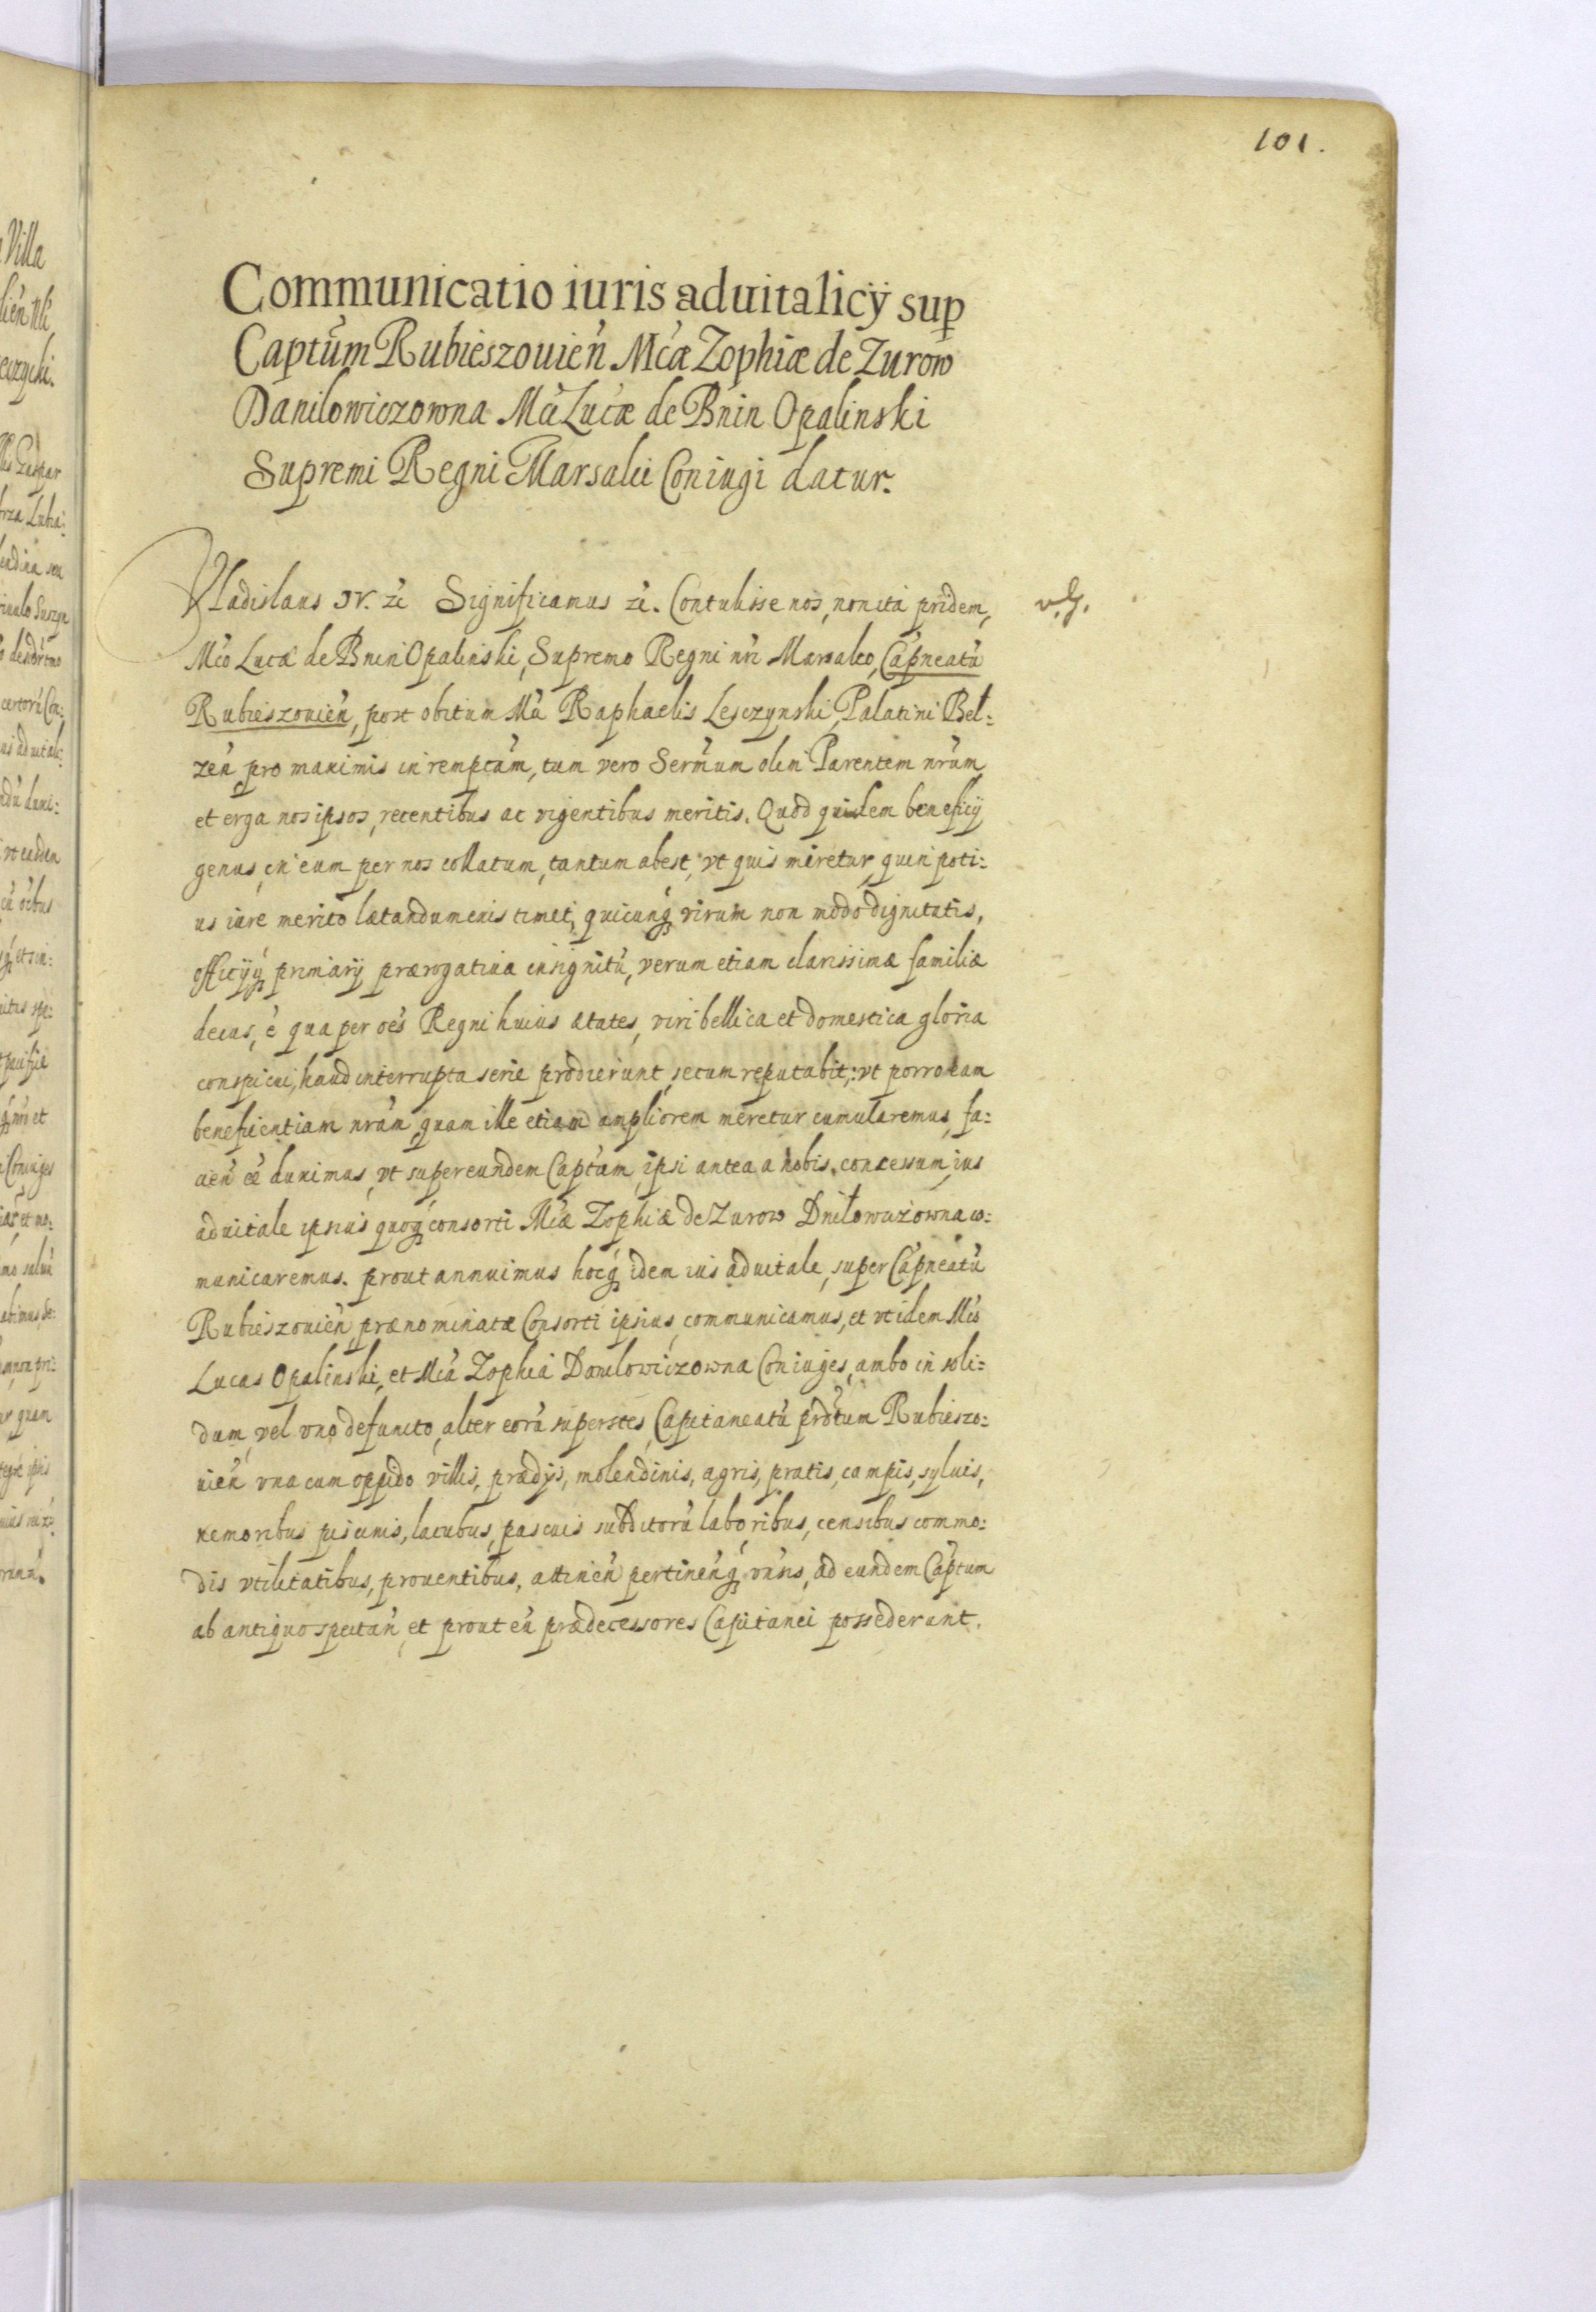 101.
Communicatio iuris aduitalicÿ sup
Captum Rubieszouień Mcæ Zophiæ de Zurow
Danilowiczowna Mci Lucæ de Bnin Opalinski
Supremi Regni Marsalci Coniugi datur.
Vladislaus IV. zc Significamus zc. Contulisse nos, non ita pridem,
v. g.
Mco Lucæ de Bnin Opalinski, Supremo Regni nri Marsalco, Capneatũ
Rubieszouień, post obitum Mci Raphaelis Lesczynski, Palatini Bel:
zeń pro maximis in rempcam, tum vero Sermum olim Parentem nrum
et erga nos ipsos, recentibus ac vigentibus meritis. Quod quidem beneficij
genus, in eum per nos collatum, tantum abest, vt quis miretur, quin poti:
us iure merito lætandum
quicunq virum non modo dignitatis,
officijq primarij prærogatiua insignitũ, verum etiam clarissimæ familiæ
decus, è qua per oẽs Regni huius ætates, viri bellica et domestica gloria
conspicui, haud interrupta serie prodierunt, secum reputabit: vt porro eam
beneficentiam nram quam ille etiam ampliorem meretur cumularemus, fa:
cień eẽ duximus, vt super eundem Captum, ipsi antea a nobis concessum, ius
aduitale ipsius quoq consorti Mcæ Zophiæ de Zurow Dniłowiczowna co:
municaremus. prout annuimus hocq idem ius aduitale, super Capneatũ
Rubieszouień prænominatæ Consorti ipsius, communicamus, et vt idem Mcs
Lucas Opalinski, et Mca Zophia Danilowiczowna Coniuges, ambo in soli:
dum, vel vno defuncto, alter eorũ superstes, Capitaneatũ prdtum Rubieszo:
uień vna cum oppido villis, prædijs, molendinis, agris, pratis, campis, syluis,
nemoribus piscinis, lacubus, pascuis subditorũ laboribus, censibus commo:
dis vtilitatibus, prouentibus, attineń pertineńq vnsis, ad eundem Captum
ab antiquo spectań, et prout eũ prædecessores Capitanei possederunt.